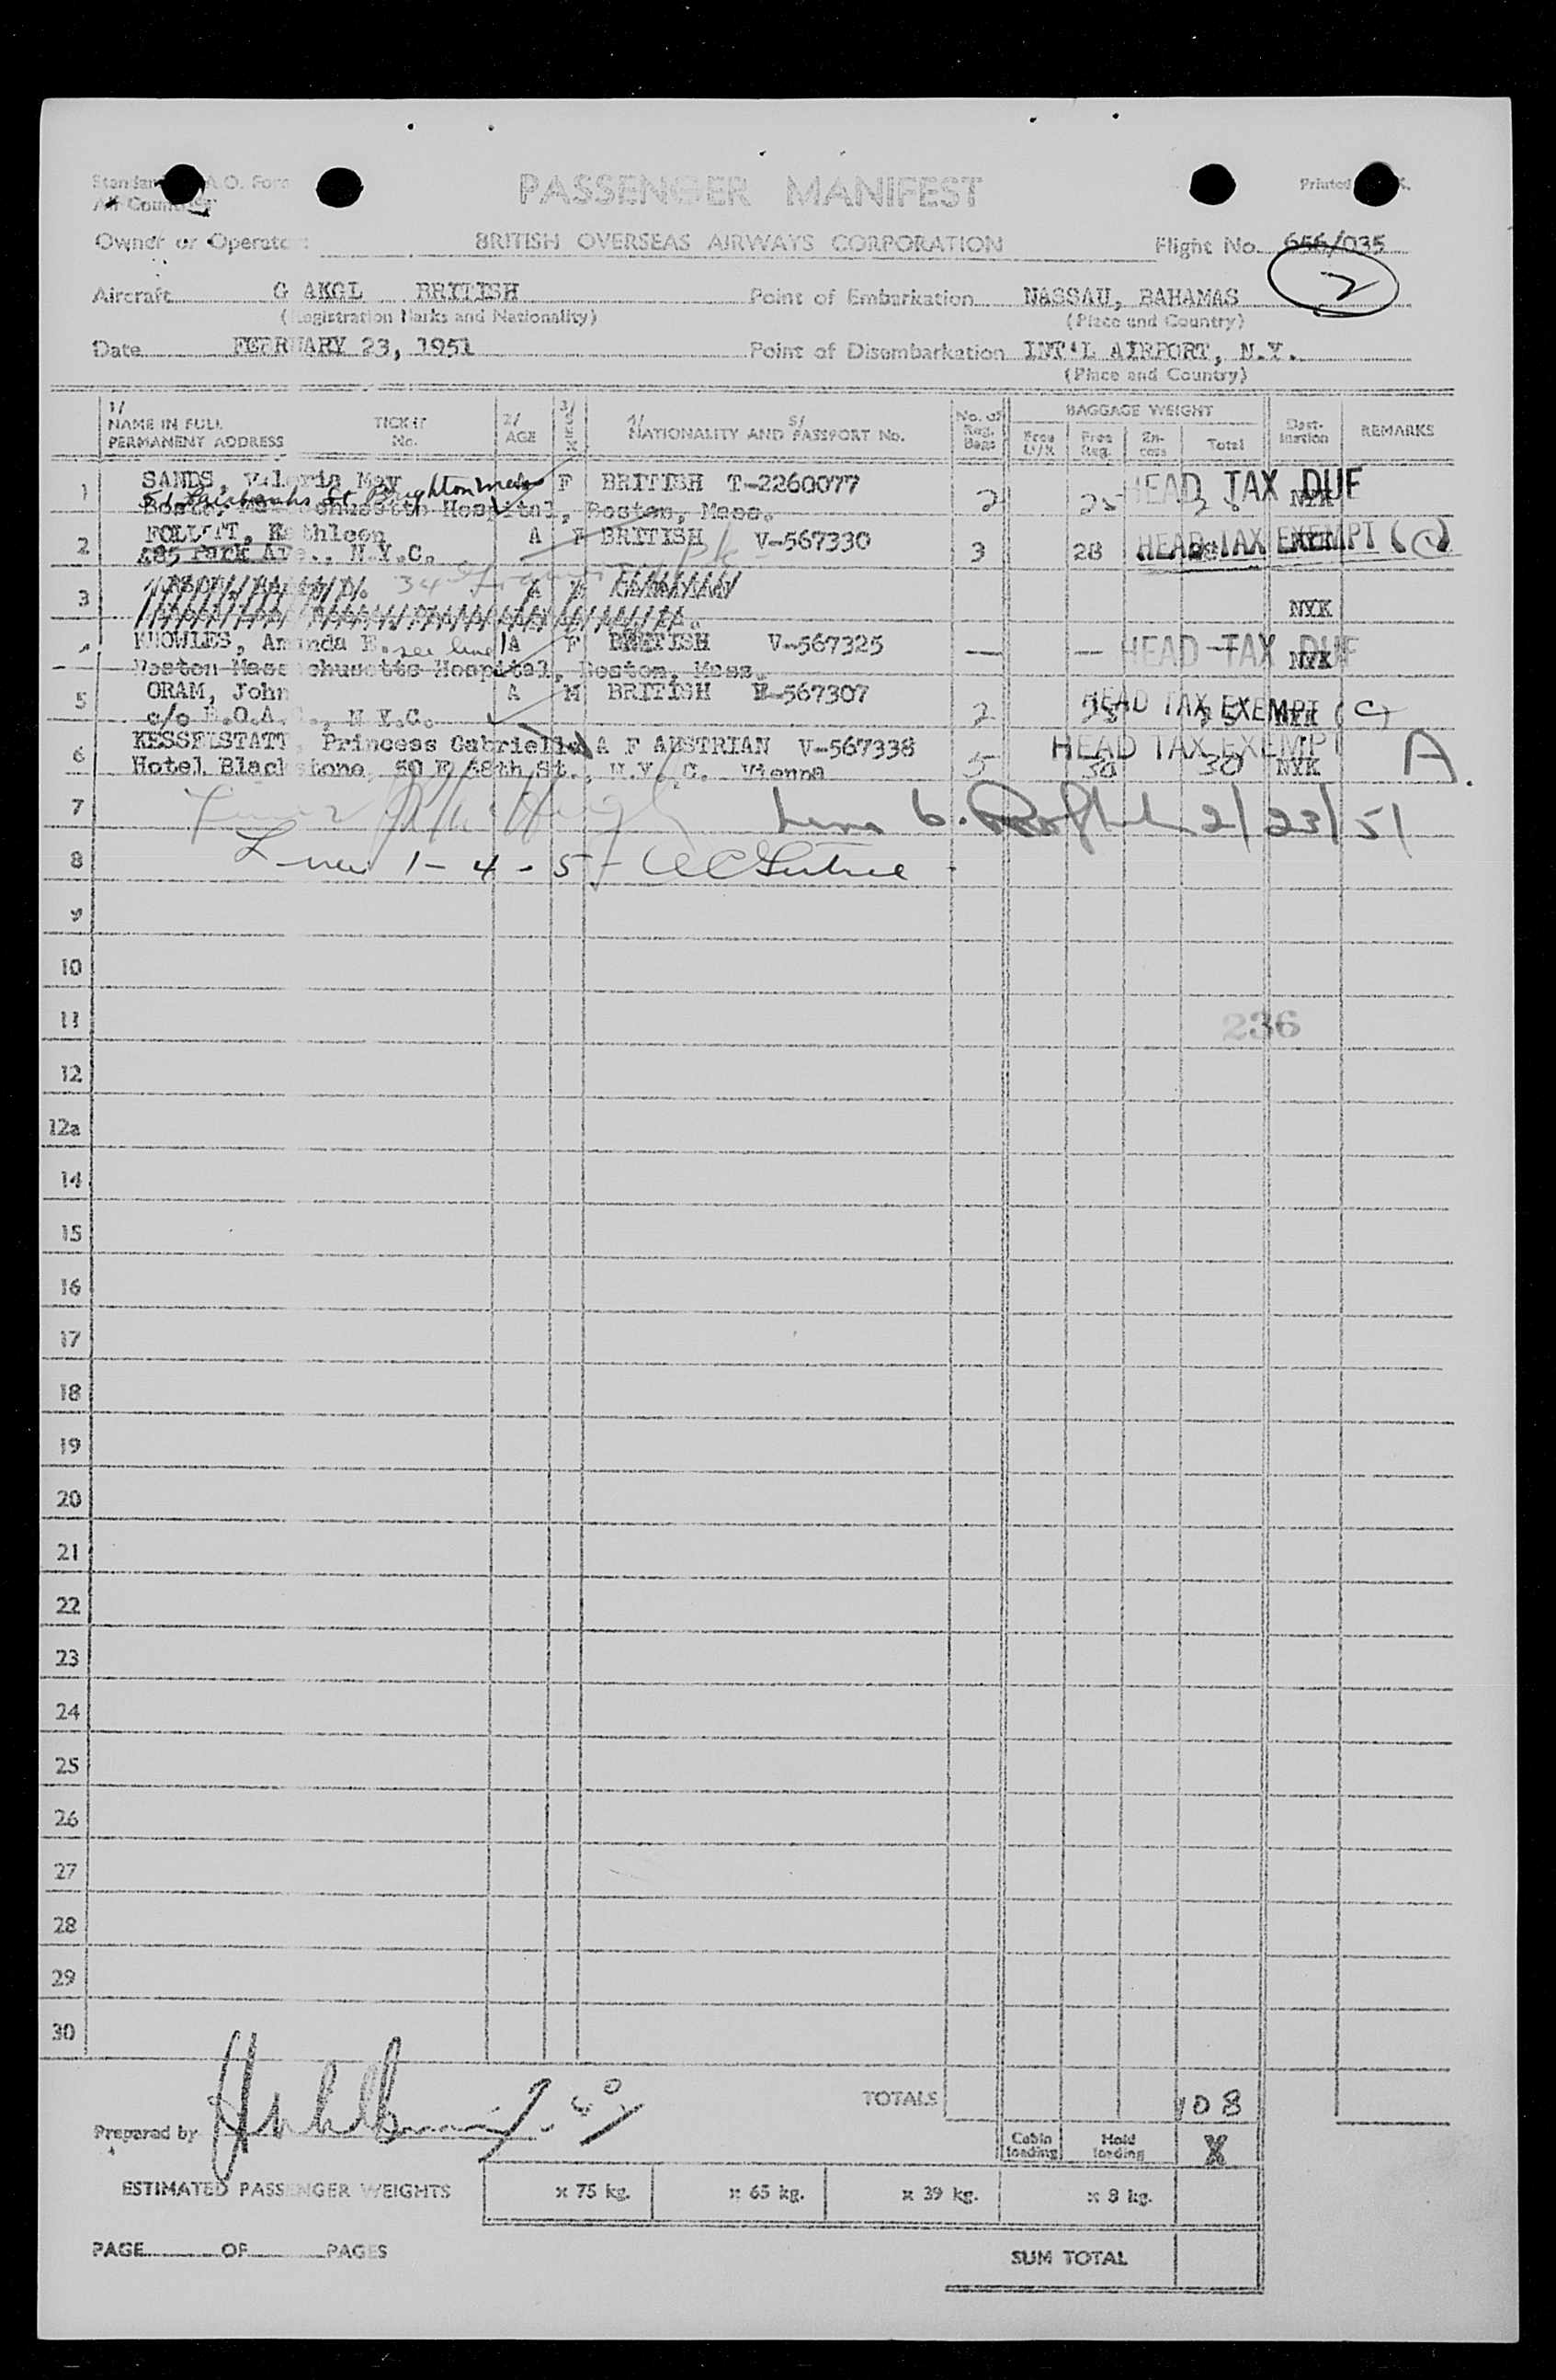 PASSENGER MANIFEST
Printed
Owner or Operator: BRITISH OVERSEAS AIRWAYS CORPORATION Flight No. 656/035
2
Aircraft G AKGL BRITISH Point of Embarkation NASSAU, BAHAMAS
(Registration Marks and Nationality) (Place and Country)
Date FEBRUARY 23, 1951 Point of Disembarkation INT'L AIRPORT, N.Y.
(Place and Country)
1/ NAME IN FULL PERMANENT ADDRESS TICKET No. 2/ AGE 3/ SEX 4/ 5/ NATIONALITY AND PASSPORT No. No. of Reg. Bags BAGGAGE WEIGHT Free Reg. Ex-cess Total Dest-ination REMARKS
1 SANDS, Valeria May A F BRITISH T-2260077 2 25 HEAD TAX DUE NYK
51 Fairbanks St Brighton Mass
Boston, Massachusetts Hospital, Boston, Mass.
2 FOLLETT, Kathleen A F BRITISH V-567330 3 28 HEAD TAX EXEMPT (C)
485 Park Ave., N.Y.C.
3 NYK
KNOWLES, Amanda E. see line 1 A F BRITISH V-567325 — — HEAD TAX DUE NYK
Boston Massachusetts Hospital, Boston, Mass.
5 ORAM, John A M BRITISH E-567307 2 25 HEAD TAX EXEMPT (C) NYK
c/o B.O.A.C., N.Y.C.
6 KESSELSTATT, Princess Gabrielle A F AUSTRIAN V-567338 5 30 HEAD TAX EXEMPT 30 NYK A.
Hotel Blackstone, 50 E 58th St., N.Y.C. Vienna
7 2/23/51
8 1-4-5
9
10
11 236
12
12a
14
15
16
17
18
19
20
21
22
23
24
25
26
27
28
29
30
TOTALS 108
Prepared by
Cabin loading Hold loading X
ESTIMATED PASSENGER WEIGHTS x 75 kg. x 65 kg. x 39 kg. x 8 kg.
PAGE OF PAGES SUM TOTAL